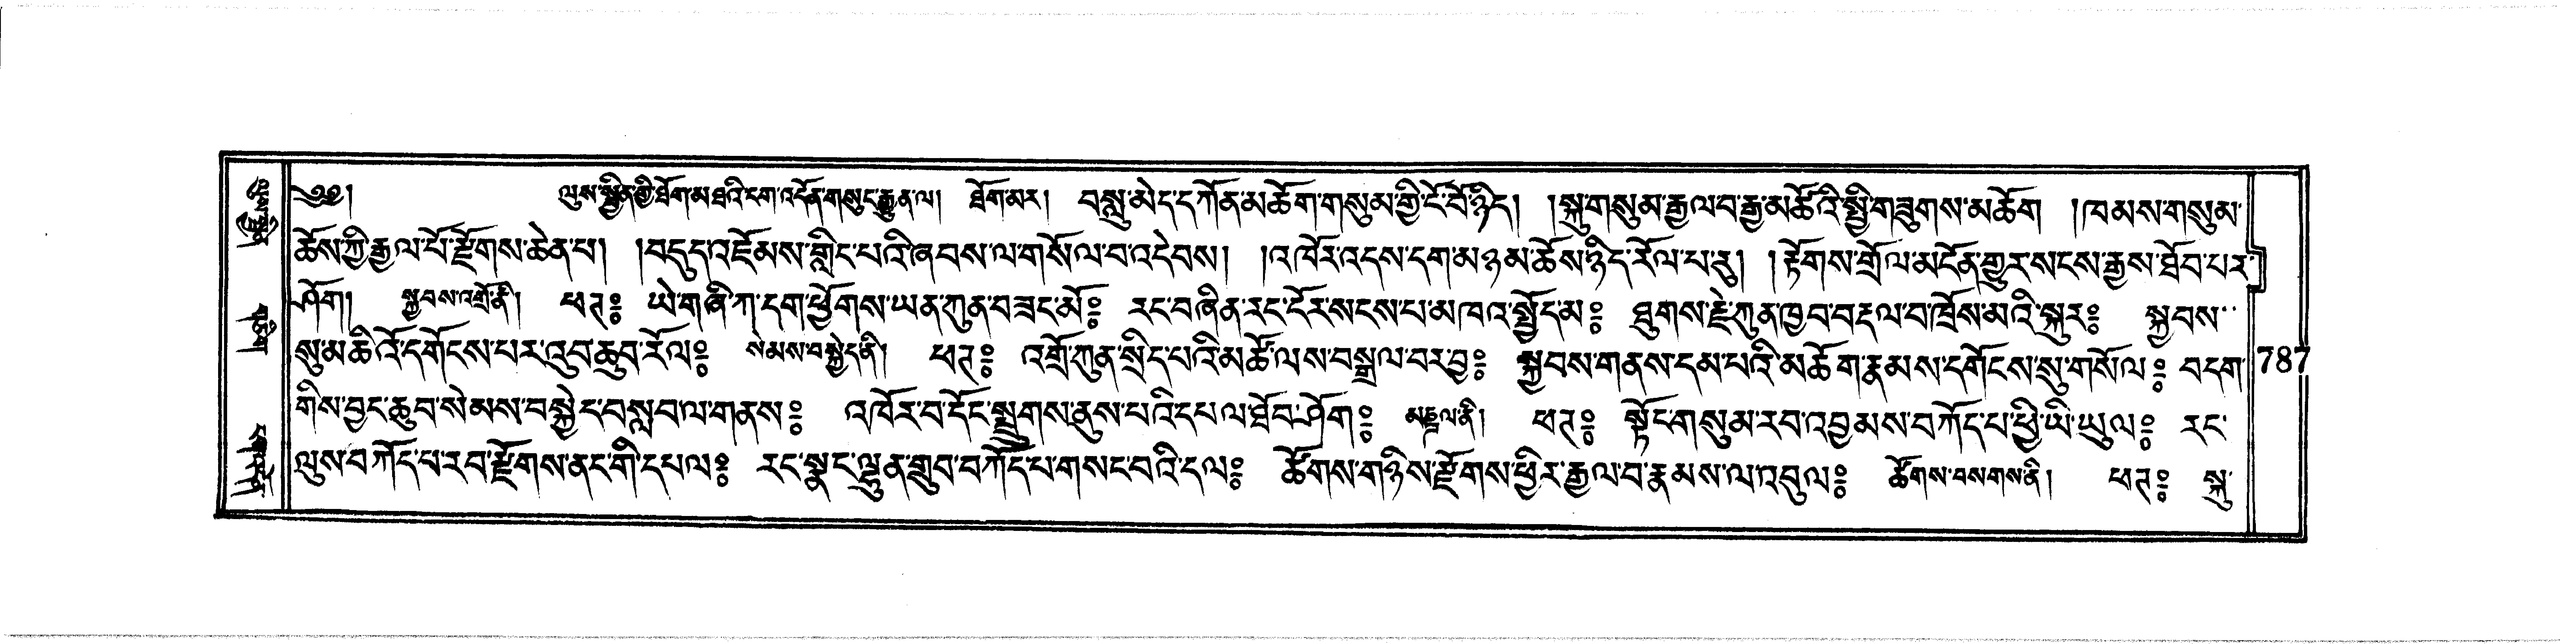 ༄༅། ལུས་སྦྱིན་གྱི་ཐོག་མཐའི་ངག་འདོན་གསུང་རྒྱུན་ལ། ཐོག་མར། བསླུ་མེད་དཀོན་མཆོག་གསུམ་གྱི་ངོ་བོ་ཉིད། །སྐུ་གསུམ་རྒྱལ་བ་རྒྱ་མཚོའི་སྤྱི་གཟུགས་མཆོག །ཁམས་གསུམ་
ཆོས་ཀྱི་རྒྱལ་པོ་རྫོགས་ཆེན་པ། །བདུད་འཇོམས་གླིང་པའི་ཞབས་ལ་གསོལ་བ་འདེབས། །འཁོར་འདས་དག་མཉམ་ཆོས་ཉིད་རོལ་པ་རུ། །རྟོགས་གྲོལ་མངོན་གྱུར་སངས་རྒྱས་ཐོབ་པར་
ཤོག། སྐྱབས་འགྲོ་ནི། ཕཊ༔ ཡེ་གཞི་ཀ་དག་ཕྱོགས་ཡན་ཀུན་བཟང་མོ༔ རང་བཞིན་རང་ངོར་སངས་པ་མཁའ་སྤྱོད་མ༔ ཐུགས་རྗེ་ཀུན་ཁྱབ་བརྡལ་བ་ཁྲོས་མའི་སྐུར༔ སྐྱབས་
སུ་མཆིའོ་དགོངས་པར་འུབ་ཆུབ་རོལ༔ སེམས་བསྐྱེད་ནི། ཕཊ༔ འགྲོ་ཀུན་སྲིད་པའི་མཚོ་ལས་བསྒྲལ་བར་བྱ༔ སྐྱབས་གནས་དམ་པའི་མཆོག་རྣམས་དགོངས་སུ་གསོལ༔ བདག་
གིས་བྱང་ཆུབ་སེམས་བསྐྱེད་བསླབ་ལ་གནས༔ འཁོར་བ་དོང་སྤྲུགས་ནུས་པའི་དཔལ་ཐོབ་ཤོག༔ མཎྜལ་ནི། ཕཊ༔ སྟོང་གསུམ་རབ་འབྱམས་བཀོད་པ་ཕྱི་ཡི་ཡུལ༔ རང་
ལུས་བཀོད་པ་རབ་རྫོགས་ནང་གི་དཔལ༔ རང་སྣང་ལྷུན་གྲུབ་བཀོད་པ་གསང་བའི་དལ༔ ཚོགས་གཉིས་རྫོགས་ཕྱིར་རྒྱལ་བ་རྣམས་ལ་འབུལ༔ ཚོགས་བསགས་ནི། ཕཊ༔ སྐུ་
787